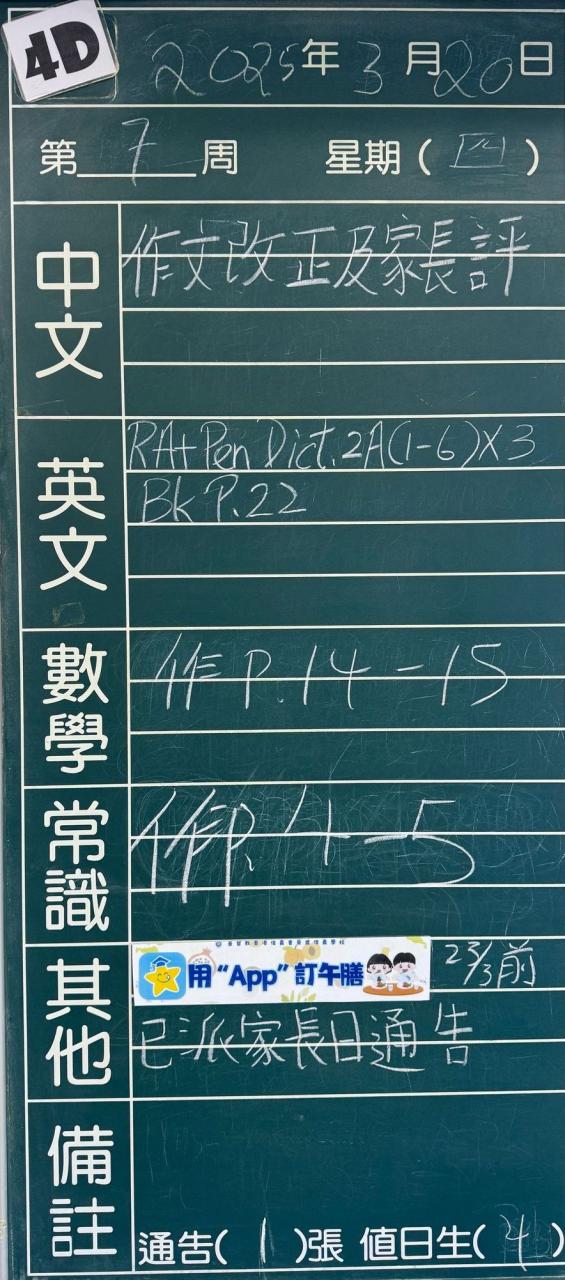 4D
2025年3月20日
第7周 星期(四)
中文
作文改正及家長評
英文
RA+Pen Dict. 2A(1-6)X3
Bk P.22
數學
作 P.14-15
常識
作P.4-5
其他
用“App”訂午膳
23/3前
已派家長日通告
備註
通告(1)張 值日生(4)